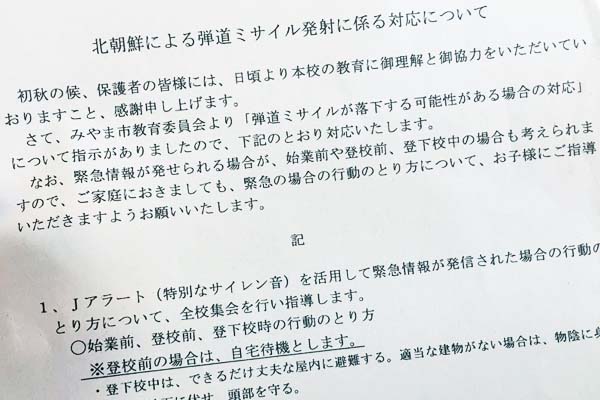 北朝鮮による弾道ミサイル発射に係る対応について
初秋の候、保護者の皆様には、日頃より本校の教育に御理解と御協力をいただいてい
おりますこと、感謝申し上げます。
さて、みやま市教育委員会より「弾道ミサイルが落下する可能性がある場合の対応」
について指示がありましたので、下記のとおり対応いたします。
なお、緊急情報が発せられる場合が、始業前や登校前、登下校中の場合も考えられま
すので、ご家庭におきましても、緊急の場合の行動のとり方について、お子様にご指導
いただきますようお願いいたします。
記
1、Jアラート（特別なサイレン音）を活用して緊急情報が発信された場合の行動の
とり方について、全校集会を行い指導します。
〇始業前、登校前、登下校時の行動のとり方
※登校前の場合は、自宅待機とします。
・登下校中は、できるだけ丈夫な屋内に避難する。適当な建物がない場合は、物陰に身
に伏せ、頭部を守る。